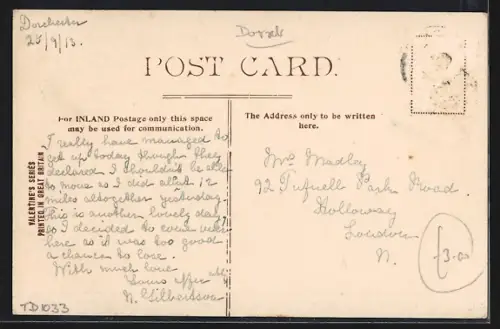 Dorchester
25/9/13.
Dorset
POST CARD.
For INLAND Postage only this space
may be used for communication.
The Address only to be written
here.
I really have managed to
get up today though they
declared I shouldn't be able
to move as I did about 12
miles altogether yesterday.
This is another lovely day
so I decided to come
here as it was too good
a chance to lose.
With much love
Yours affec
N.
Mrs Madley
92 Tufnell Park Road
Holloway
London
N.
£3.00
VALENTINE'S SERIES
PRINTED IN GREAT BRITAIN
TD1033